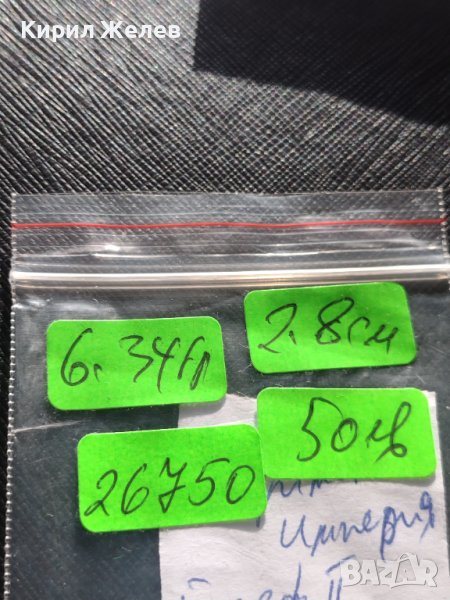 Кирил Желев
6.34гр
2.8см
50лв
26750
Империя
II
BAZAR